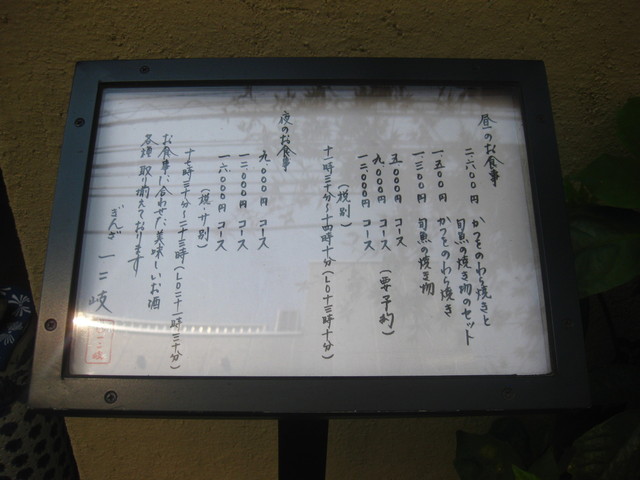 昼のお食事
二六〇〇円 かつをのわら焼きと
旬魚の焼き物のセット
一五〇〇円 かつをのわら焼き
一三〇〇円 旬魚の焼き物
五〇〇〇円 コース
九〇〇〇円 コース (要予約)
一二〇〇〇円 コース
(税別)
十一時三十分〜十四時十分(LO十三時十分)
夜のお食事
九〇〇〇円 コース
一二〇〇〇円 コース
一六〇〇〇円 コース
(税サ別)
十七時三十分〜二十三時(LO二十一時三十分)
お食事に合わせた美味しいお酒
各種取り揃えております
ぎんざ 一二岐